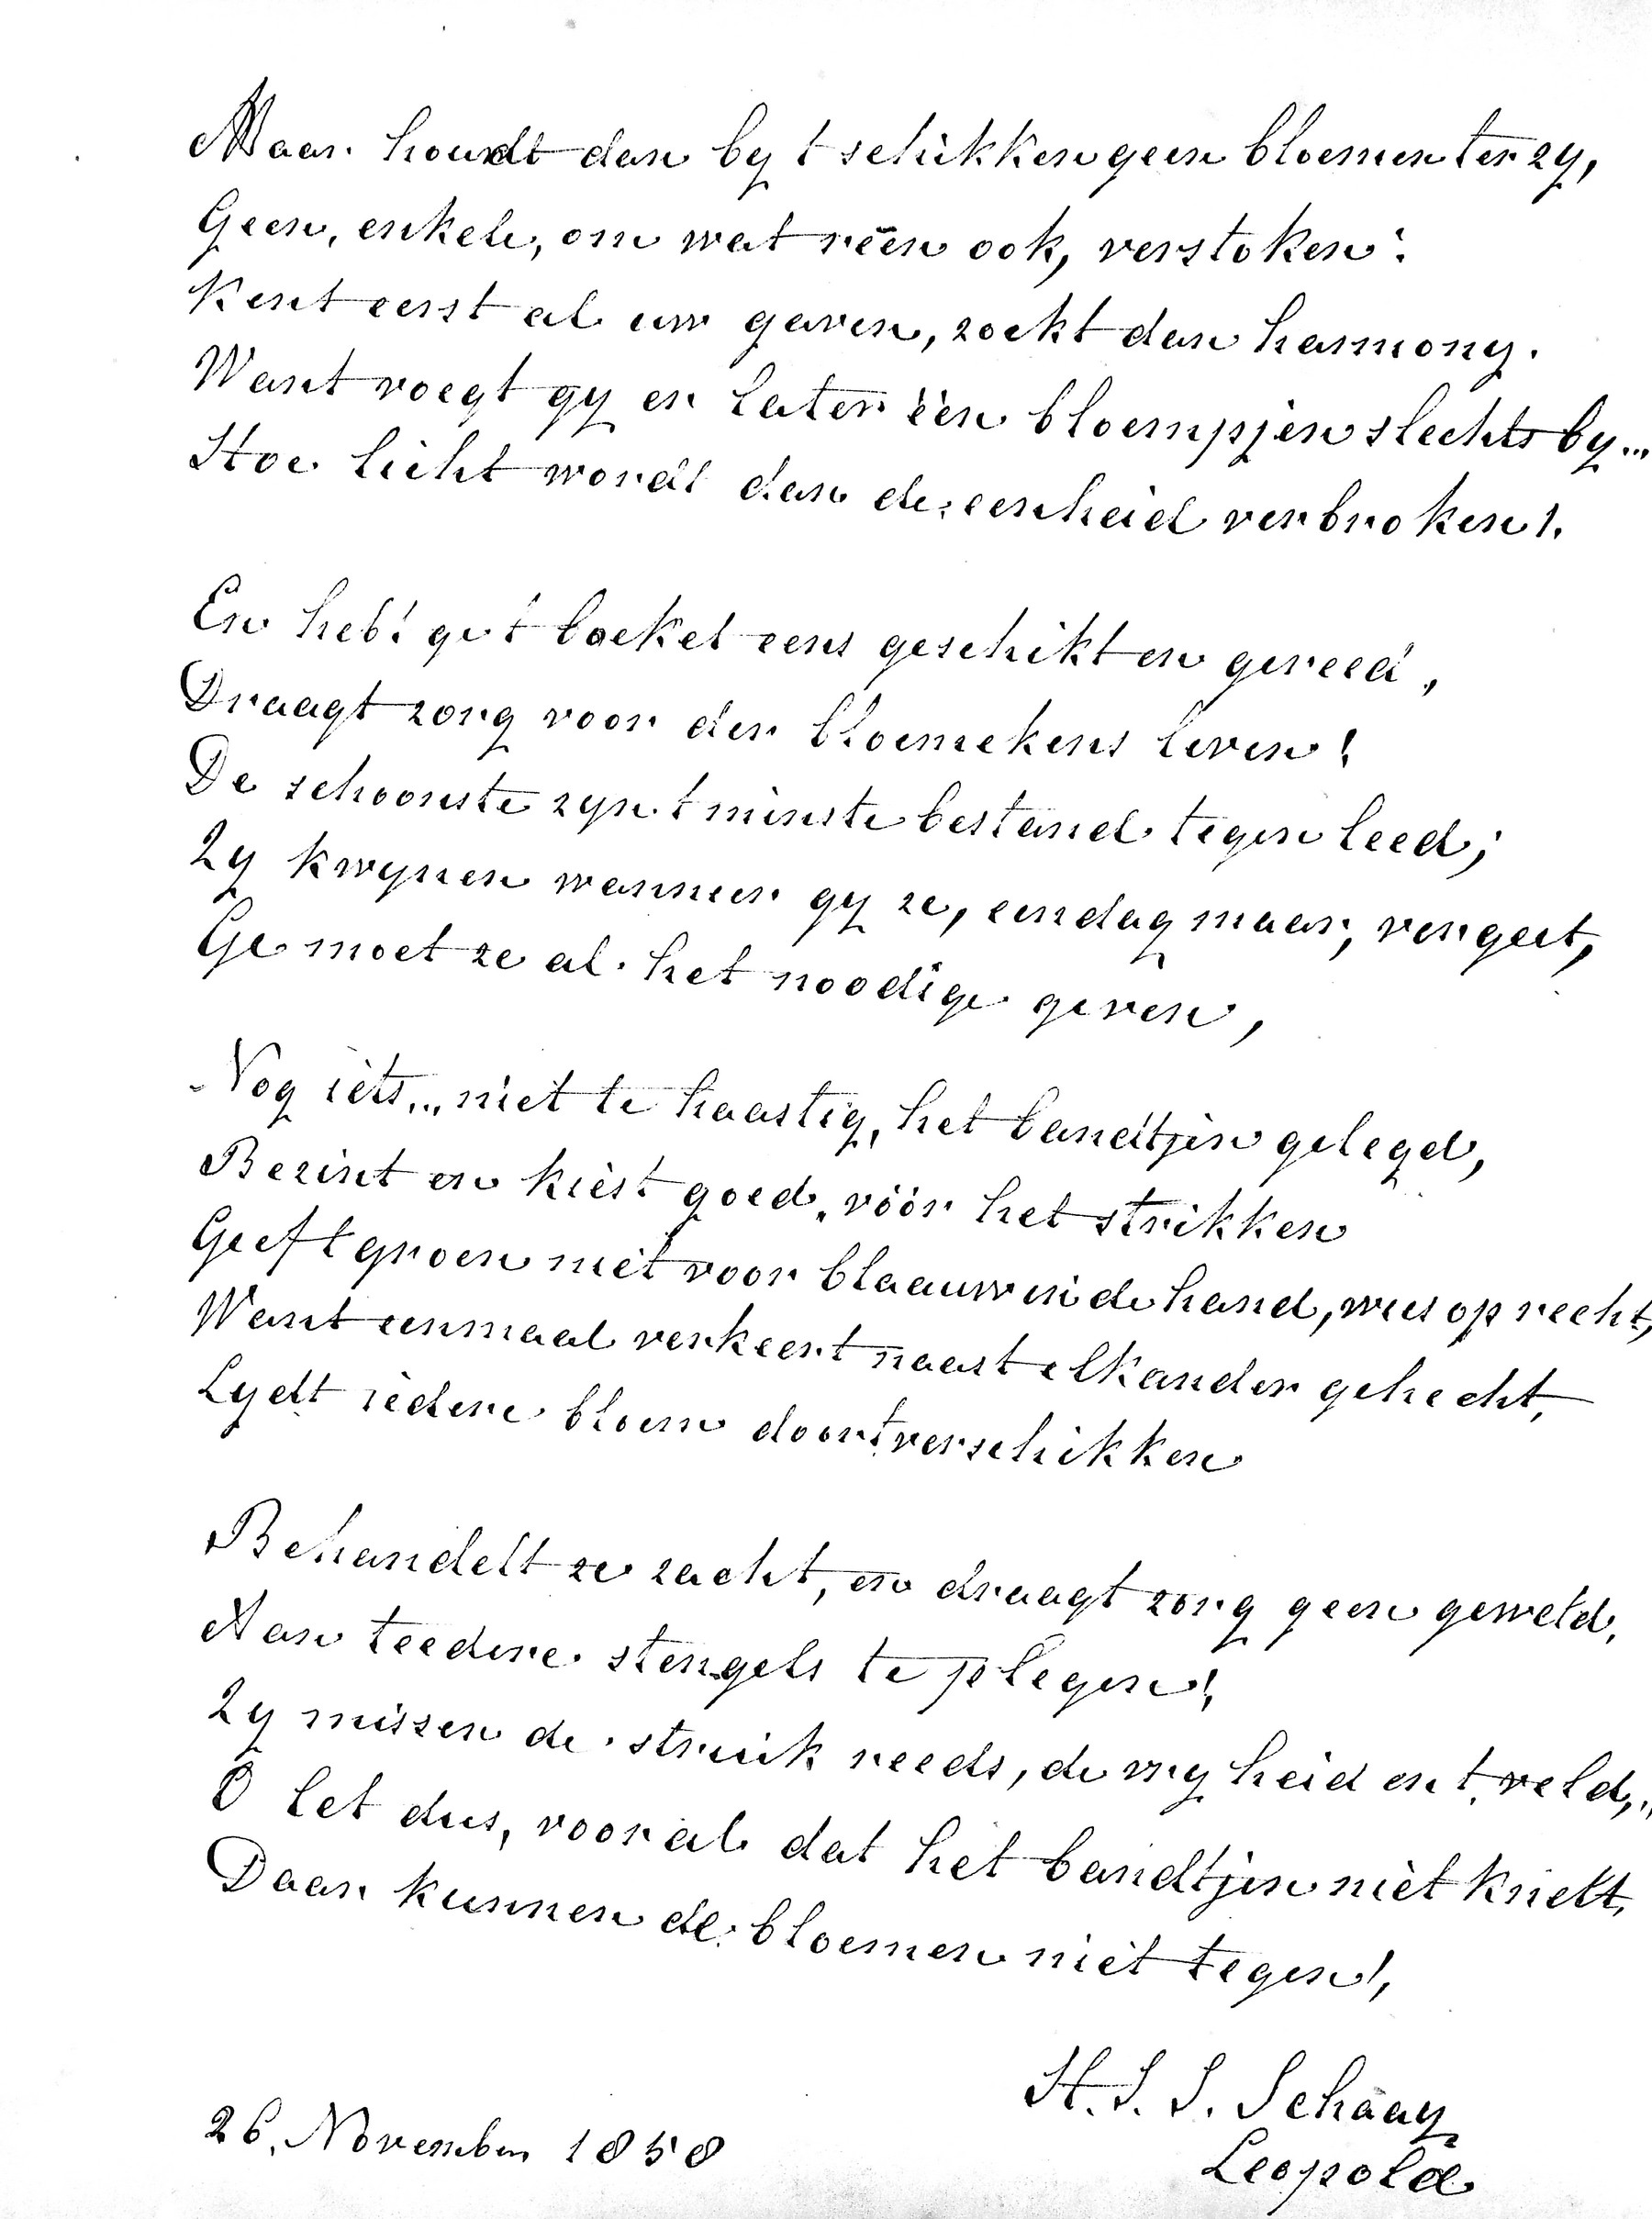 Maar houdt dan by t schikken geen bloemen ter zy,
Geen, enkele, om wat reën ook, verstoken:
Kent eerst al uw gaven, zoekt dan harmony.
Want voegt gy er later één bloempjen slechts by...
Hoe licht wordt dan de eenheid verbroken!
En hebt ge t boeket eens geschikt en gereed,
Draagt zorg voor der bloemekens leven!
De schoonste zyn t minste bestand tegen leed;
Zy kwynen wanneer gy ze, een dag maar, vergeet,
Ge moet ze al het noodige geven,
Nog iets... niet te haastig, het bandtjen gelegd,
Bezint en kiest goed, vóór het strikken
Geeft groen niet voor blaauw in de hand, wees oprecht,
Want eenmaal verkeert naast elkander gehecht,
Lydt iedere bloem door t verschikken
Behandelt ze zacht, en draagt zorg geen geweld,
Aan teedere stengels te plegen!
Zy missen de struik reeds, de vryheid en t veld,..
O let dus, vooral dat het bandtjen niet knelt,
Daar kunnen de bloemen niet tegen!,
26, November 1858
H. J. J. Schaay
Leopold